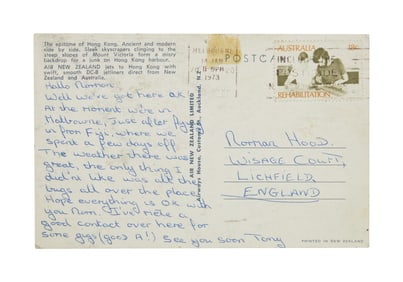 The epitome of Hong Kong. Ancient and modern
side by side. Sleek skyscrapers clinging to the
steep slopes of Mount Victoria form a misty
backdrop for a junk on Hong Kong harbour.
AIR NEW ZEALAND jets to Hong Kong with
swift, smooth DC-8 jetliners direct from New
Zealand and Australia.
Hello Norman,
Well we've got here O.K.
At the moment we're in
Melbourne, Just after flying
in from Fiji, where we
spent a few days off.
The weather there was
great, the only thing I
did'nt like was all the
bugs all over the place.
Hope everything is OK with
you Mum, I've made a
good contact over here for
some gigs (good A!) See you soon Tony
AIR NEW ZEALAND LIMITED
Airways House, Customs St. Auckland, N.Z.
POSTCARD
MELBOURNE
1973
AUSTRALIA
18c
REHABILITATION
Norman Hood
WISAGE COURT,
LICHFIELD
ENGLAND
PRINTED IN NEW ZEALAND